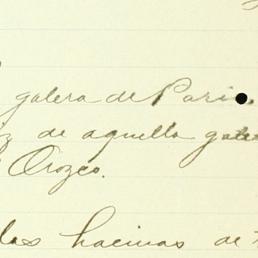 galera de Paris.
de aquella galera
Orozco.
las hacinas de